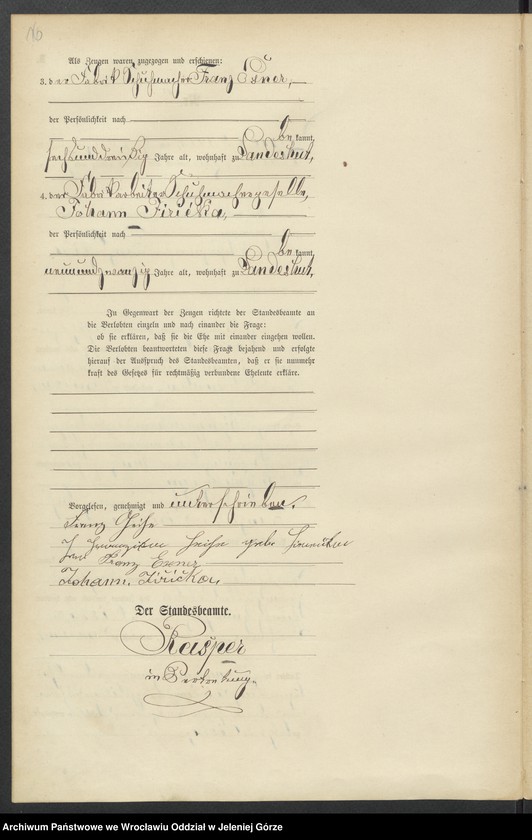 Als Zeugen waren zugezogen und erschienen:
3. der Fabrik Schuhmacher Franz Exner,
der Persönlichkeit nach
be kannt,
sechsunddreißig Jahre alt, wohnhaft zu Landeshut,
4. der Fabrikarbeiter Schuhmachergeselle,
Johann Jiřička,
der Persönlichkeit nach
be kannt,
neunundzwanzig Jahre alt, wohnhaft zu Landeshut,
In Gegenwart der Zeugen richtete der Standesbeamte an
die Verlobten einzeln und nach einander die Frage:
ob sie erklären, daß sie die Ehe mit einander eingehen wollen.
Die Verlobten beantworteten diese Frage bejahend und erfolgte
hierauf der Ausspruch des Standesbeamten, daß er sie nunmehr
kraft des Gesetzes für rechtmäßig verbundene Eheleute erkläre.
Vorgelesen, genehmigt und unterschrieben.
Franz
geb.
Franz Exner
Johann Jiřička
Der Standesbeamte.
Kasper
in Vertretung.
Archiwum Państwowe we Wrocławiu Oddział w Jeleniej Górze